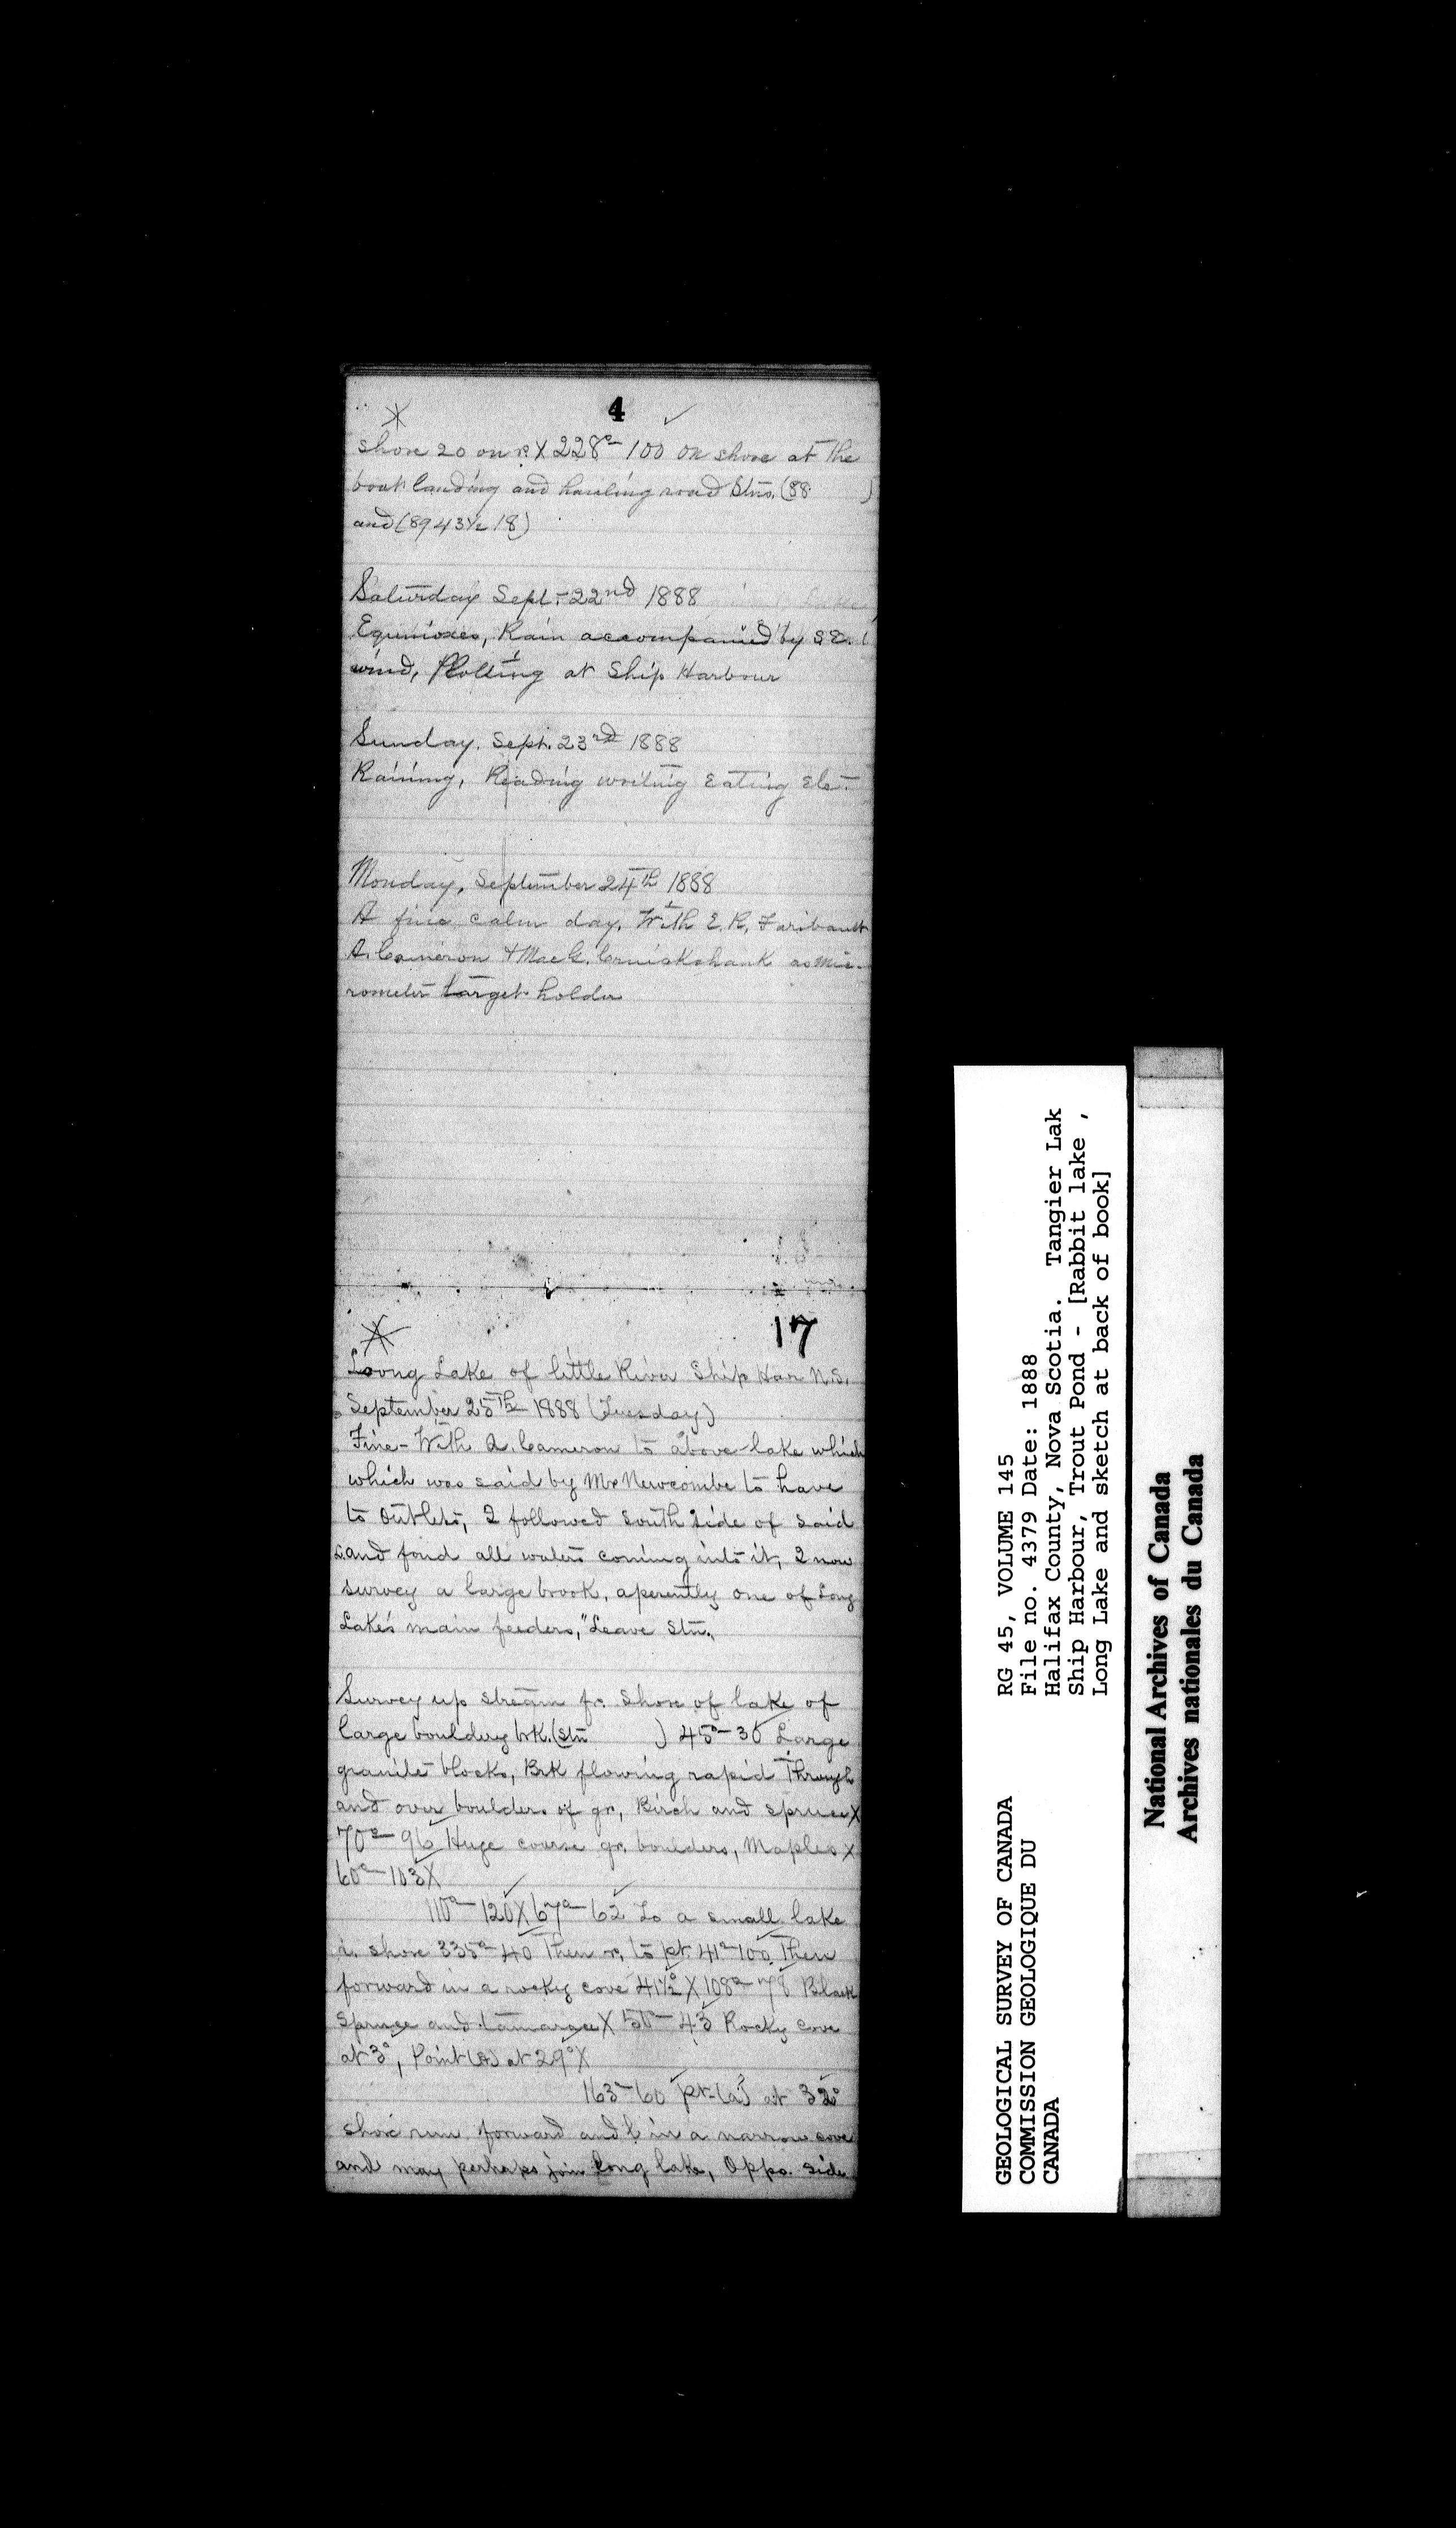 4
shore 20 on r. X 228° 100 on shore at the
boat landing and hauling road Stns. (88 )
and (89 43½ 18)
Saturday Sept. 22nd 1888
Equinoxes, Rain accompanied by SE.
wind, Plotting at Ship Harbour
Sunday. Sept. 23rd 1888
Raining, Reading writing Eating Etc.
Monday, September 24th 1888
A fine calm day. With E. R. Faribault
A. Cameron & MacG. Cruickshank as mic-
rometer target holder
17
Loong Lake of little River Ship Har N.S.
September 25Th 1888 (Tuesday)
Fine - With A. Cameron to above lake which
which was said by Mr Newcombe to have
to outlets, I followed south side of said
and foud all waters coming into it, I now
survey a large brook, aperently one of Long
Lake's main feeders, "Leave Stn.
Survey up stream fr. shore of lake of
large bouldery brk. (Stn ) 45°- 30 Large
granite blocks, Brk flowing rapid Through
and over boulders of gr, Birch and spruce X
70°- 96 Huge coarse gr. boulders, Maples X
60°- 103 X
110°- 120 X 67°- 62 To a small lake
shore 335°- 40 Then r. to pt. 41° 100 Then
forward in a rocky cove 41½° X 108°- 78 Black
Spruce and tamarac X 50°- 43 Rocky cove
at 3°, Point (a) at 29° X
163°- 60 pt. (a) at 32°
shore run forward and l in a narrow cove
and may perhaps join Long lake, Oppo. side
RG 45, VOLUME 145
File no. 4379 Date: 1888
Halifax County, Nova Scotia. Tangier Lak
Ship Harbour, Trout Pond - [Rabbit lake ,
Long Lake and sketch at back of book]
GEOLOGICAL SURVEY OF CANADA
COMMISSION GEOLOGIQUE DU
CANADA
National Archives of Canada
Archives nationales du Canada